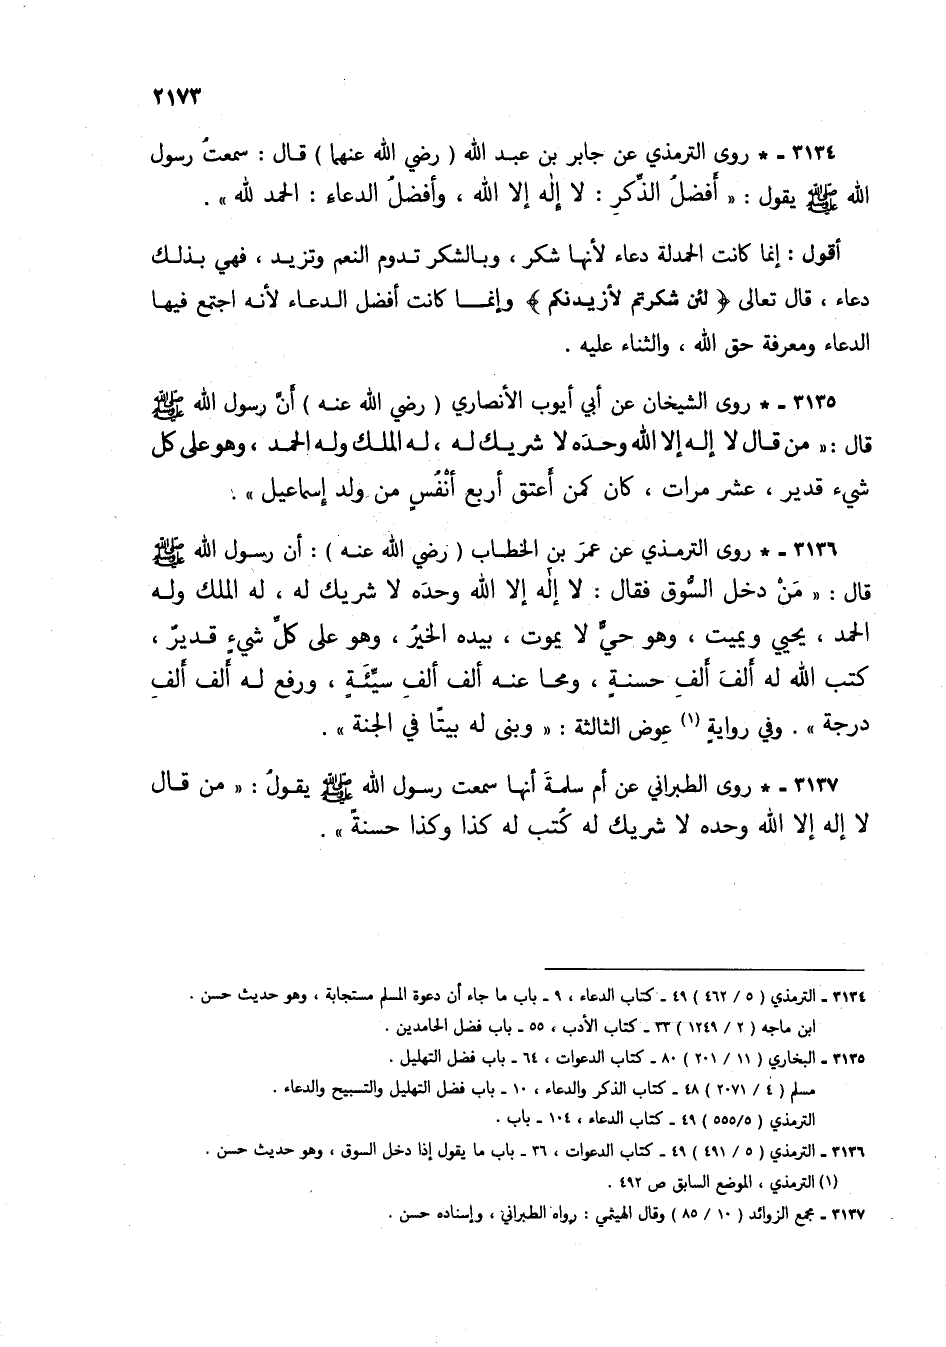 ٢١٧٣
٣١٣٤ ـ * روى الترمذي عن جابر بن عبد الله ( رضي الله عنهما ) قال : سمعتُ رسول
الله ﷺ يقول : « أَفضلُ الذِّكرِ : لا إِلٰه إلا الله ، وأَفضلُ الدعاء : الحمد لله » .
أقول : إنما كانت الحمدلة دعاء لأنها شكر ، وبالشكر تدوم النعم وتزيد ، فهي بذلك
دعاء ، قال تعالى ﴿ لئن شكرتم لأزيدنكم ﴾ وإنما كانت أفضل الدعاء لأنه اجتمع فيها
الدعاء ومعرفة حق الله ، والثناء عليه .
٣١٣٥ ـ * روى الشيخان عن أبي أيوب الأنصاري ( رضي الله عنه ) أَنَّ رسول الله ﷺ
قال : « من قال لا إله إلا الله وحدَه لا شريك له ، له الملك وله الحمد ، وهو على كل
شيء قدير ، عشر مرات ، كان كمن أَعتق أربع أنْفُسٍ من ولد إسماعيل » .
٣١٣٦ ـ * روى الترمذي عن عمرَ بن الخطاب ( رضي الله عنه ) : أن رسول الله ﷺ
قال : « مَنْ دخل السُّوق فقال : لا إِلٰه إلا الله وحدَه لا شريك له ، له الملك وله
الحمد ، يحيي ويميت ، وهو حيٌّ لا يموت ، بيده الخيرُ ، وهو على كلِّ شيءٍ قديرٌ ،
كتب الله له أَلفَ أَلفِ حسنةٍ ، ومحا عنه ألف ألفِ سيِّئَةٍ ، ورفع له أَلف أَلفِ
درجة » . وفي روايةٍ (١) عِوض الثالثة : « وبنى له بيتًا في الجنة » .
٣١٣٧ ـ * روى الطبراني عن أم سلمةَ أنها سمعت رسول الله ﷺ يقولُ : « من قال
لا إله إلا الله وحده لا شريك له كُتب له كذا وكذا حسنةً » .
٣١٣٤ ـ الترمذي ( ٥ / ٤٦٢ ) ٤٩ ـ كتاب الدعاء ، ٩ ـ باب ما جاء أن دعوة المسلم مستجابة ، وهو حديث حسن .
ابن ماجه ( ٢ / ١٢٤٩ ) ٣٣ ـ كتاب الأدب ، ٥٥ ـ باب فضل الحامدين .
٣١٣٥ ـ البخاري ( ١١ / ٢٠١ ) ٨٠ ـ كتاب الدعوات ، ٦٤ ـ باب فضل التهليل .
مسلم ( ٤ / ٢٠٧١ ) ٤٨ ـ كتاب الذكر والدعاء ، ١٠ ـ باب فضل التهليل والتسبيح والدعاء .
الترمذي ( ٥/٥٥٥ ) ٤٩ ـ كتاب الدعاء ، ١٠٤ ـ باب .
٣١٣٦ ـ الترمذي ( ٥ / ٤٩١ ) ٤٩ ـ كتاب الدعوات ، ٣٦ ـ باب ما يقول إذا دخل السوق ، وهو حديث حسن .
(١) الترمذي ، الموضع السابق ص ٤٩٢ .
٣١٣٧ ـ مجمع الزوائد ( ١٠ / ٨٥ ) وقال الهيثمي : رواه الطبراني ، وإسناده حسن .